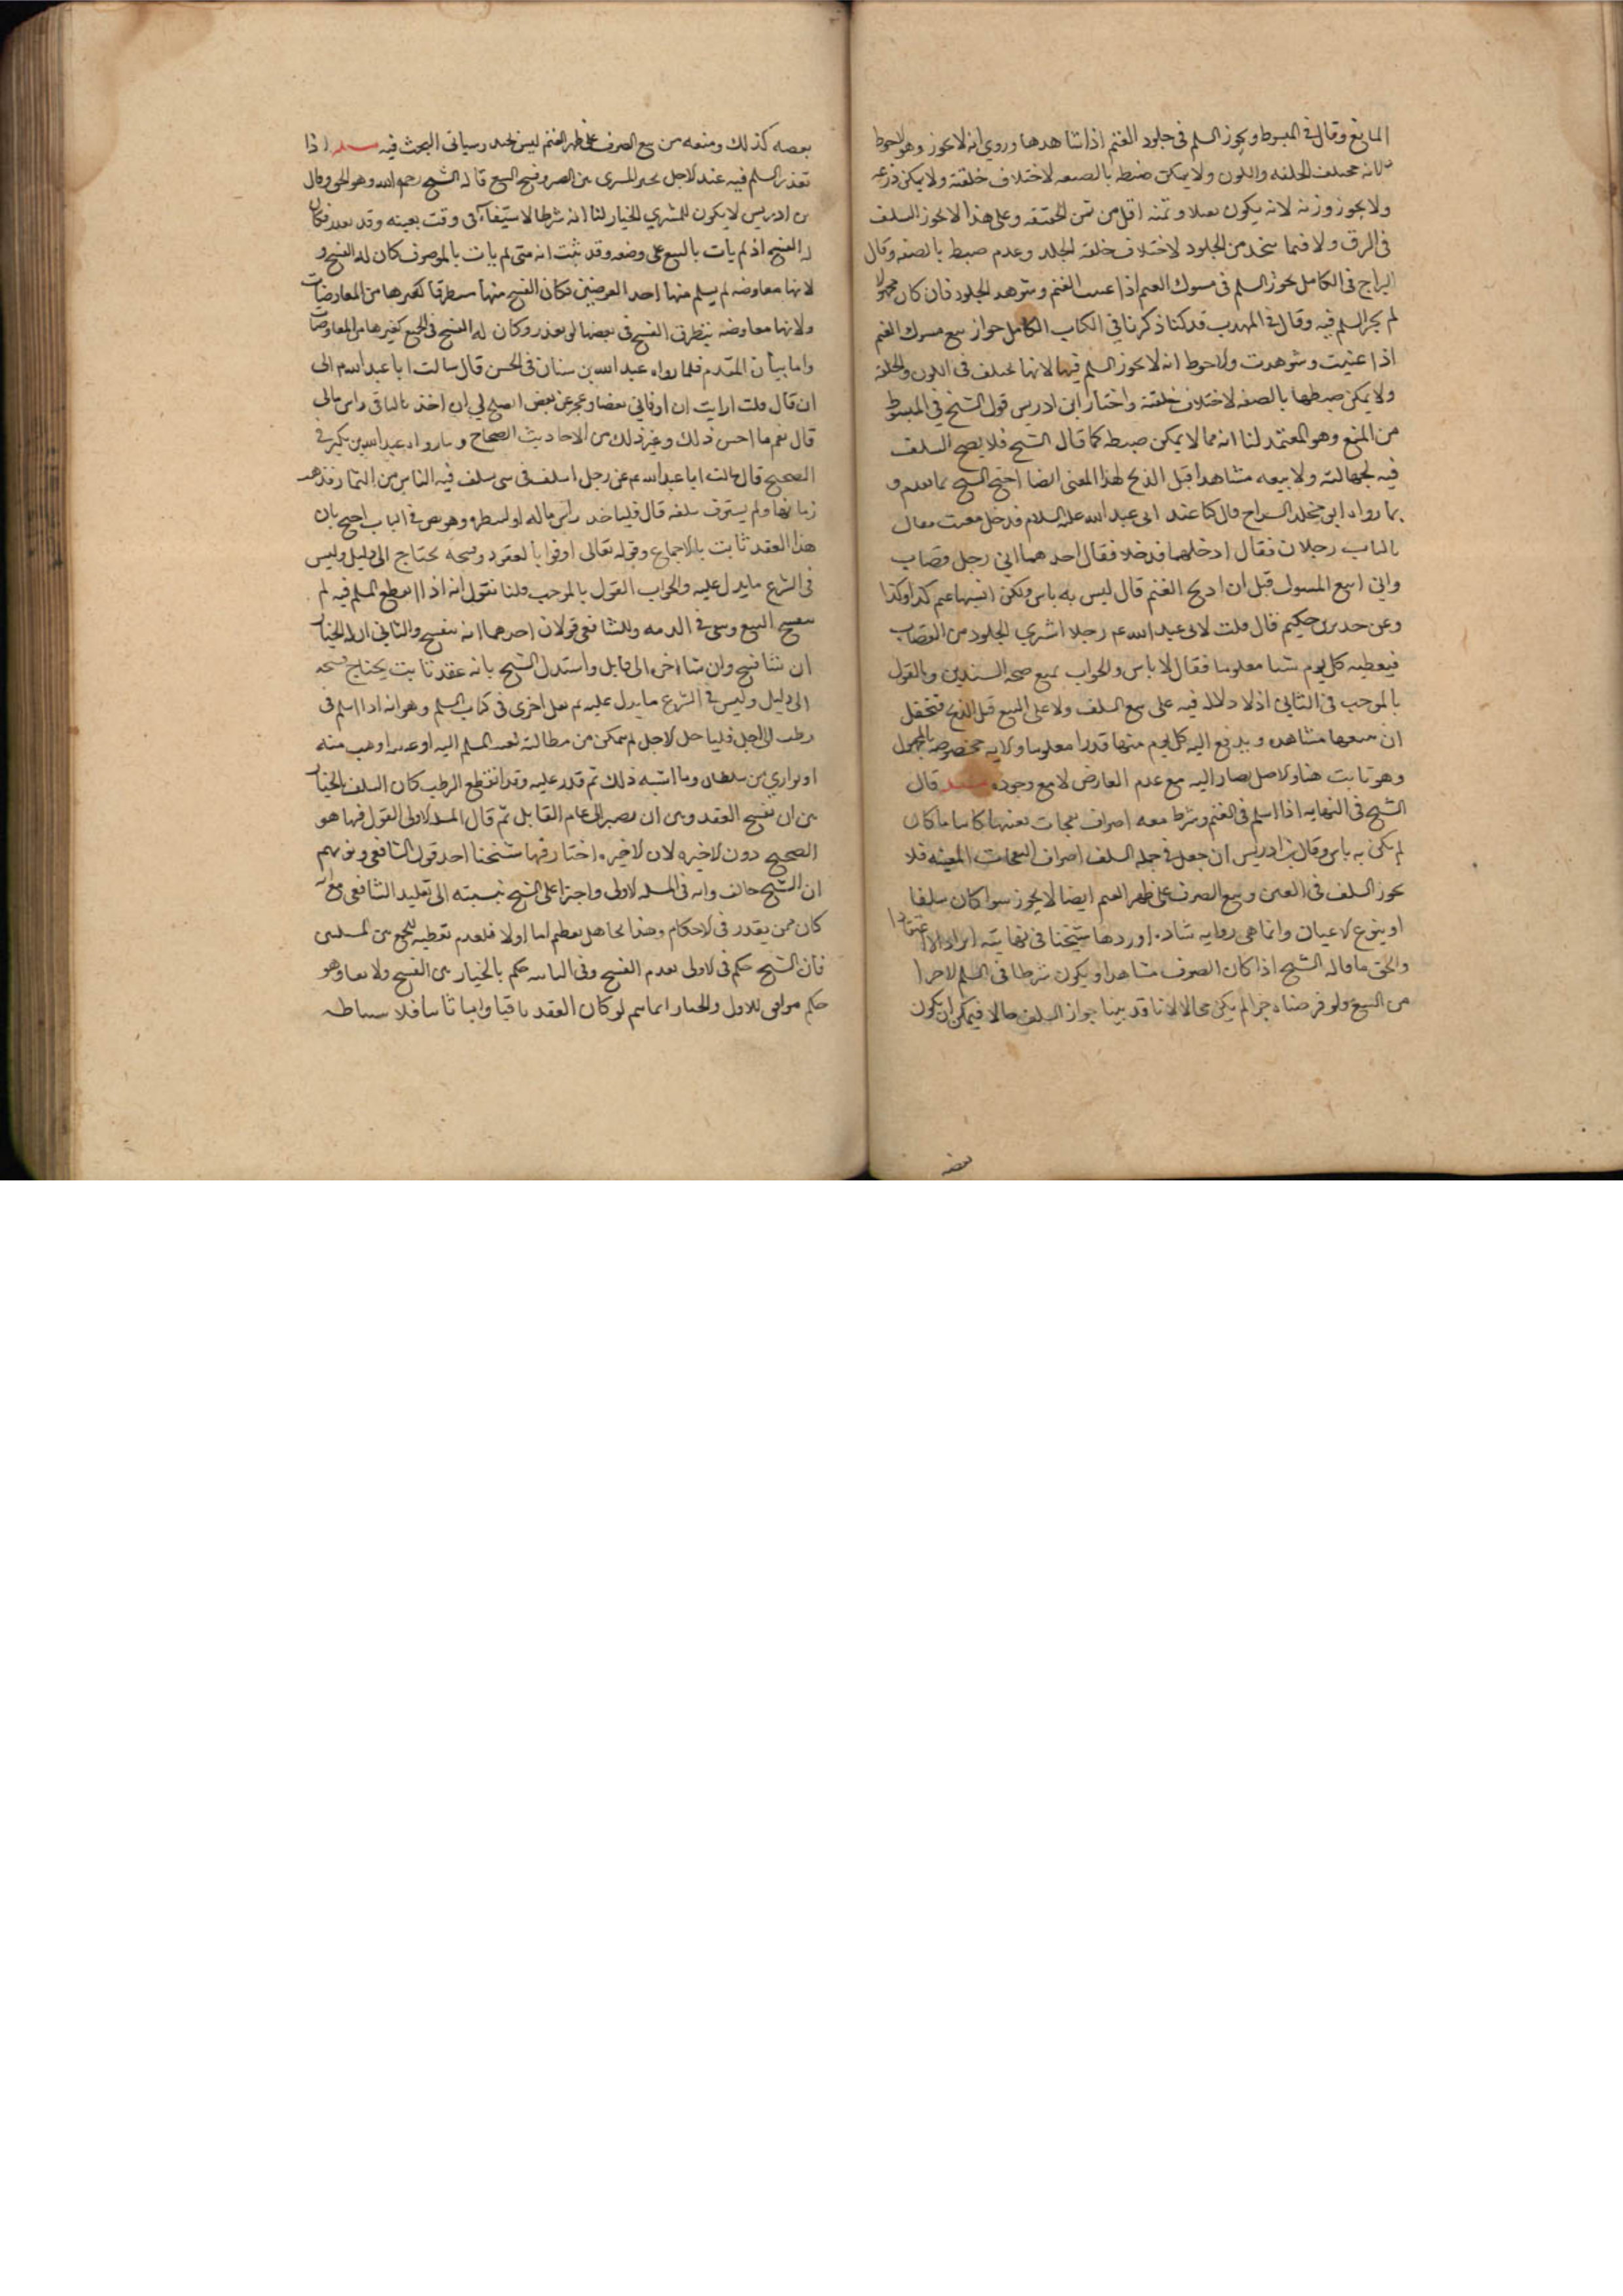 المانع وقال في المبسوط ويجوز السلم في جلود الغنم اذا شاهدها وروي انه لا يجوز وهو الاحوط
لانه مختلف الخلقه واللون ولا يمكن ضبطه بالصفه لاختلاف خلقته ولا يمكن ذرعه
ولا يجوز وزنه لانه يكون ثقيلا وثمنه اقل من ثمن الخفيفه وعلى هذا لا يجوز السلف
في الرق ولا فيما يتخذ من الجلود لاختلاف خلقه الجلد وعدم ضبطه بالصفه وقال
البراج في الكامل يجوز السلم في مسوك الغنم اذا عينت الغنم وشوهد الجلود فان كان مجهولا
لم يجز السلم فيه وقال في المهذب قد كنا ذكرنا في الكتاب الكامل جواز بيع مسوك الغنم
اذا عينت وشوهدت والاحوط انه لا يجوز السلم فيها لانها تختلف في اللون والخلقه
ولا يمكن ضبطها بالصفه لاختلاف خلقته واختار ابن ادريس قول الشيخ في المبسوط
من المنع وهو المعتمد لنا انه مما لا يمكن ضبطه كما قال الشيخ فلا يصح السلف
فيه لجهالته ولا بيعه مشاهدا قبل الذبح لهذا المعنى ايضا احتج الشيخ بما تقدم و
بما رواه ابو مخلد السراج قال كنا عند ابي عبد الله عليه السلام فدخل معتب فقال
بالباب رجلان فقال ادخلهما فدخلا فقال احدهما اني رجل قصاب
واني ابيع المسوك قبل ان اذبح الغنم قال ليس به باس ولكن انسبها غنم كذا وكذا
وعن حديد بن حكيم قال قلت لابي عبد الله عم رجلا اشترى الجلود من القصاب
فيعطيه كل يوم شيا معلوما فقال لا باس والجواب بمنع صحه السندين وبالقول
بالموجب في الثاني اذ لا دلاله فيه على بيع السلف ولا على المبيع قبل الذبح فتحتمل
ان يبيعها مشاهده ويدفع اليه كل يوم منها قدرا معلوما ولانه مخصوصه بالمجهول
وهو ثابت هنا والاصل يصار اليه مع عدم العارض لا مع وجوده مسئله قال
الشيخ في النهايه اذا اسلم في الغنم وشرط معه اصواف نعجات بعينها كائنا ما كان
لم يكن به باس وقال ابن ادريس ان جعل في جمله السلف اصواف النعجات المعينه فلا
يجوز السلف في العين وبيع الصوف على ظهر الغنم ايضا لا يجوز سوا كان سلفا
او بيوع الاعيان وانما هي روايه شاذه اوردها شيخنا في نهايته ايرادا لا اعتقادا
والحق ما قاله الشيخ اذا كان الصوف مشاهدا ويكون شرطا في السلم لا جزا
من المبيع ولو فرضناه جزا لم يكن محالا لانا قد بينا جواز السلف حالا فيمكن ان يكون
بعضه
بعضه كذلك ومنعه من بيع الصوف على ظهر الغنم ليس بجيد وسياتي البحث فيه مسئله اذا
تعذر المسلم فيه عند الاجل تخير المشتري بين الصبر وفسخ البيع قاله الشيخ رحمه الله وهو الحق وقال
بن ادريس لا يكون للمشتري الخيار لنا انه شرط الاستيفآء في وقت بعينه وقد تعذر فكان
له الفسخ اذ لم يات بالبيع على وضعه وقد ثبت انه متى لم يات بالموصوف كان له الفسخ و
لانها معاوضه لم يسلم منها احد العوضين فكان الفسخ منها متطرقا كغيرها من المعاوضات
ولانها معاوضه يتطرق الفسخ في بعضها لو تعذر وكان له الفسخ في الجميع كغيرها من المعاوضات
واما بيان المقدم فلما رواه عبد الله بن سنان في الحسن قال سالت ابا عبد الله عم الى
ان قال قلت ارايت ان اوفاني بعضا وعجز عن بعض ايصلح لي ان اخذ بالباقي راس مالي
قال نعم ما احسن ذلك وغير ذلك من الاحاديث الصحاح وما رواه عبد الله بن بكير في
الصحيح قال سالت ابا عبد الله عم عن رجل اسلف في شي يسلف فيه الناس من الثمار فذهب
زمانها ولم يستوف سلفه قال فليأخذ راس ماله او لينظره وهو نص في الباب احتج بان
هذا العقد ثابت بالاجماع وقوله تعالى اوفوا بالعقود وفسخه يحتاج الى دليل وليس
في الشرع ما يدل عليه والجواب القول بالموجب ولنا نقول انه اذا انقطع المسلم فيه لم
ينفسخ البيع وبقي في الذمه وللشافعي قولان احدهما انه ينفسخ والثاني ان له الخيار
ان شا فسخ وان شا اخره الى قابل واستدل الشيخ بانه عقد ثابت يحتاج فسخه
الى دليل وليس في الشرع ما يدل عليه ثم نقل اخرى في كتاب السلم وهو انه اذا اسلم في
رطب الى اجل فلما حل الاجل لم يتمكن من مطالبته لغيبه المسلم اليه او غيبته او هرب منه
او توارى من سلطان وما اشبه ذلك ثم قدر عليه وقد انقطع الرطب كان السلف بالخيار
بين ان يفسخ العقد وبين ان يصبر الى عام القابل ثم قال المسله الاولى القول فيها هو
الصحيح دون الاخيره لان الاخيره اختار فيها شيخنا احد قولي الشافعي وتوهم
ان الشيخ خالف قوله في المسله الاولى واجترا على الشيخ بنسبته الى تقليد الشافعي مع انه
كان ممن يقتدى في الاحكام وهذا تجاهل عظيم اما اولا فلعدم تفطنه للجمع بين المسلتين
فان الشيخ حكم في الاولى بعدم الفسخ وفي الثانيه حكم بالخيار بين الفسخ والابقا وهو
حكم موافق للاول والخيار انما يتم لو كان العقد باقيا واما ثانيا فلا